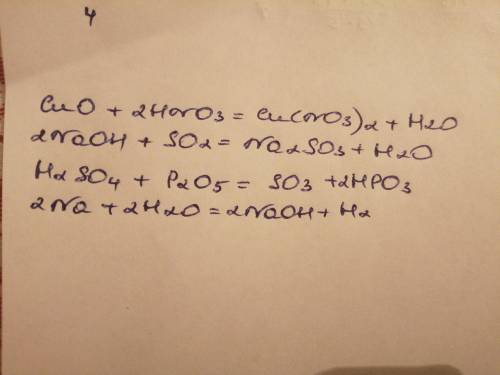 4
CuO + 2HNO3 = Cu(NO3)2 + H2O
2NaOH + SO2 = Na2SO3 + H2O
H2SO4 + P2O5 = SO3 + 2HPO3
2Na + 2H2O = 2NaOH + H2